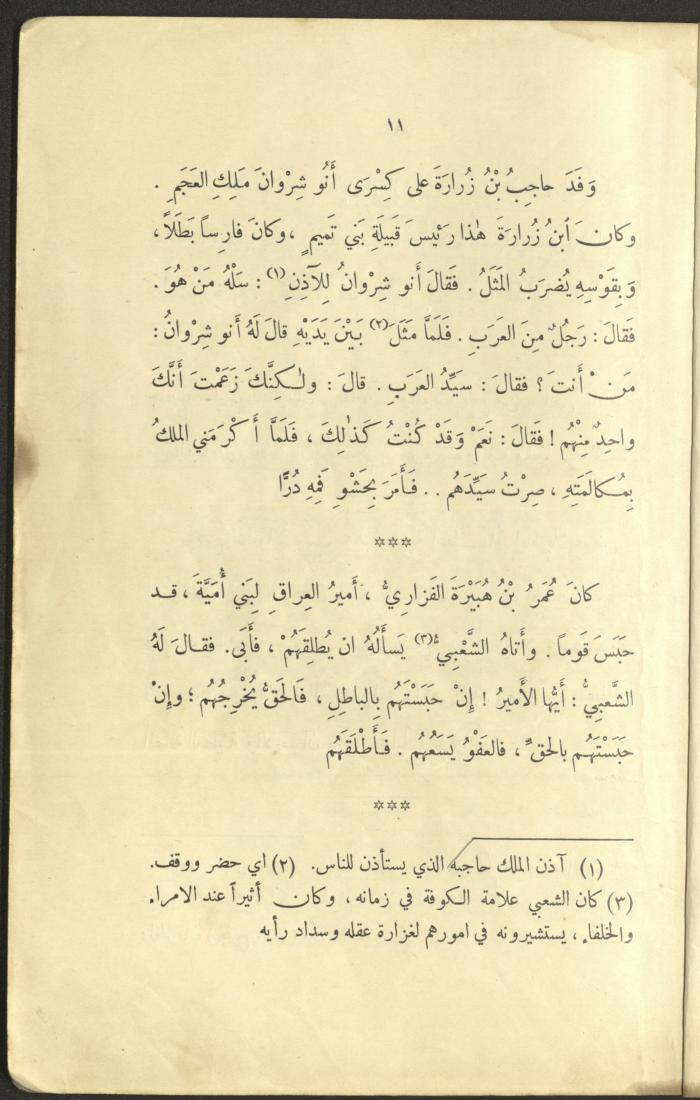 ١١
وَفَدَ حاجِبُ بْنُ زُرارَةَ على كِسْرَى أَنُو شِرْوانَ مَلِكِ العَجَمِ .
وكانَ ٱبنُ زُرارَةَ هٰذا رَئيسَ قَبيلَةِ بَني تَميمٍ ، وكانَ فارِساً بَطَلاً ،
وَبِقَوْسِهِ يُضرَبُ المَثَلُ . فَقالَ أَنو شِرْوانُ لِلآذِنِ (١) : سَلْهُ مَنْ هُوَ .
فَقالَ : رَجُلٌ مِنَ العَرَبِ . فَلَمَّا مَثَلَ (٢) بَيْنَ يَدَيْهِ قالَ لَهُ أَنو شِرْوانُ :
مَنْ أَنتَ ؟ فقالَ : سَيِّدُ العَرَبِ . قالَ : ولٰكِنَّكَ زَعَمْتَ أَنَّكَ
واحِدٌ مِنْهُم ! فَقالَ : نَعَمْ وَقَدْ كُنْتُ كَذٰلِكَ ، فَلَمَّا أَكْرَمَني الملكُ
بِمُكالَمَتِهِ ، صِرْتُ سَيِّدَهُم . . فَأَمَرَ بِحَشْوِ فَمِهِ دُرًّا
***
كانَ عُمَرُ بْنُ هُبَيْرَةَ الفَزارِيُّ ، أَميرُ العِراقِ لِبَني أُمَيَّةَ ، قد
حَبَسَ قَوماً . وأَتاهُ الشَّعْبِيُّ (٣) يَسأَلُهُ ان يُطلِقَهُمْ ، فأَبَى. فقالَ لَهُ
الشَّعبِيُّ : أَيُّها الأَميرُ ! إِنْ حَبَسْتَهُم بِالباطِلِ ، فَالحَقُّ يُخْرِجُهُم ؛ وإِنْ
حَبَسْتَهُم بالحَقِّ ، فالعَفْوُ يَسَعُهُم . فَأَطْلَقَهُم
***
(١) آذن الملك حاجبه الذي يستأذن للناس. (٢) اي حضر ووقف.
(٣) كان الشعبي علامة الكوفة في زمانه ، وكان أثيراً عند الامراء
والخلفاء ، يستشيرونه في امورهم لغزارة عقله وسداد رأيه